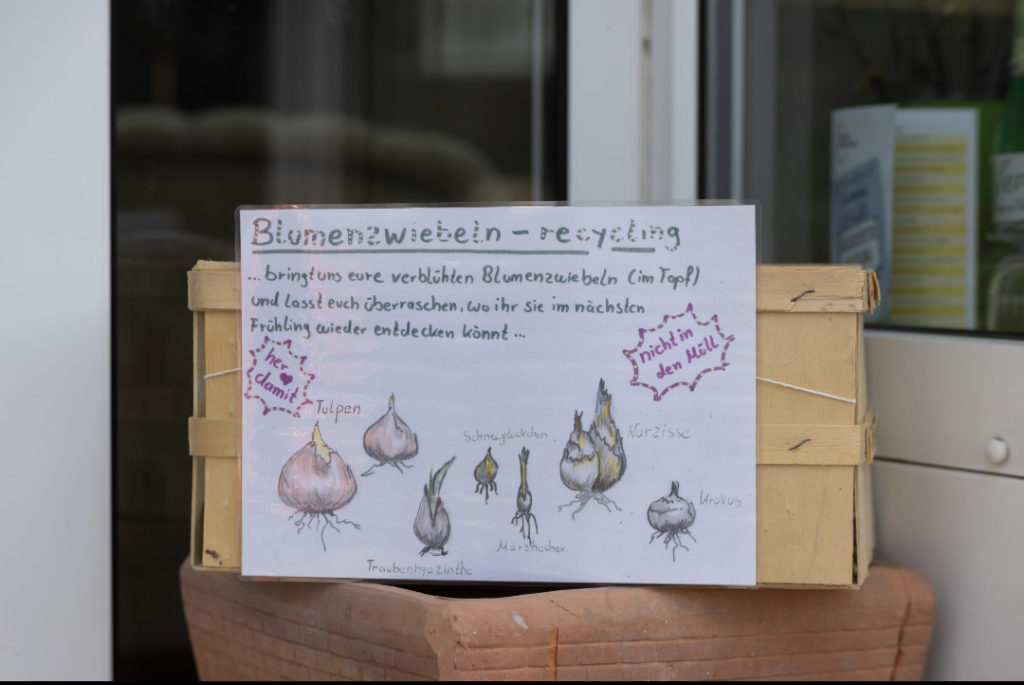 Blumenzwiebeln - recycling
... bringt uns eure verblühten Blumenzwiebeln (im Topf)
und lasst euch überraschen, wo ihr sie im nächsten
Frühling wieder entdecken könnt ...
her
damit
nicht in
den Müll
Tulpen
Schneeglöckchen
Narzisse
Krokus
Märzbecher
Traubenhyazinthe